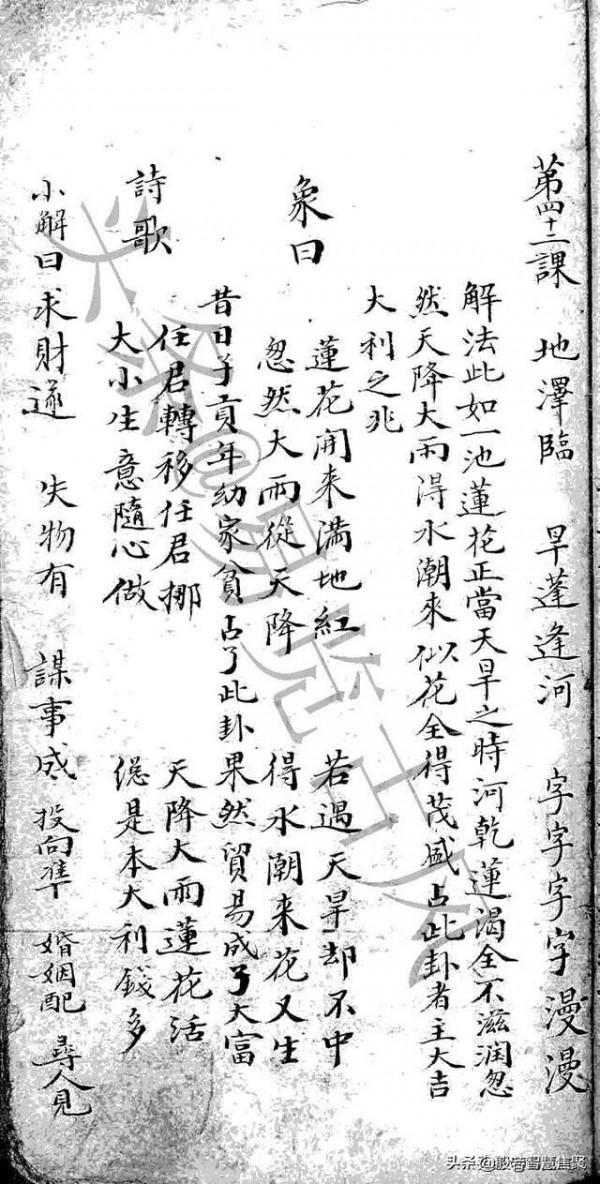 第四十二課　地澤臨　旱蓬逢河　字字字字漫漫
解法此如一池蓮花正當天旱之時河乾蓮渴全不滋潤忽
然天降大雨得水潮來似花全得茂盛占此卦者主大吉
大利之兆
象曰
蓮花開來滿地紅　若遇天旱却不中
忽然大雨從天降　得水潮來花又生
昔日子貢年幼家貧占了此卦果然貿易成了大富
詩歌
任君轉移任君挪　天降大雨蓮花活
大小生意隨心做　總是本大利錢多
小解曰求財遂　失物有　謀事成　投向準　婚姻配　尋人見
头条@易览古风
头条@般若智慧焦聚